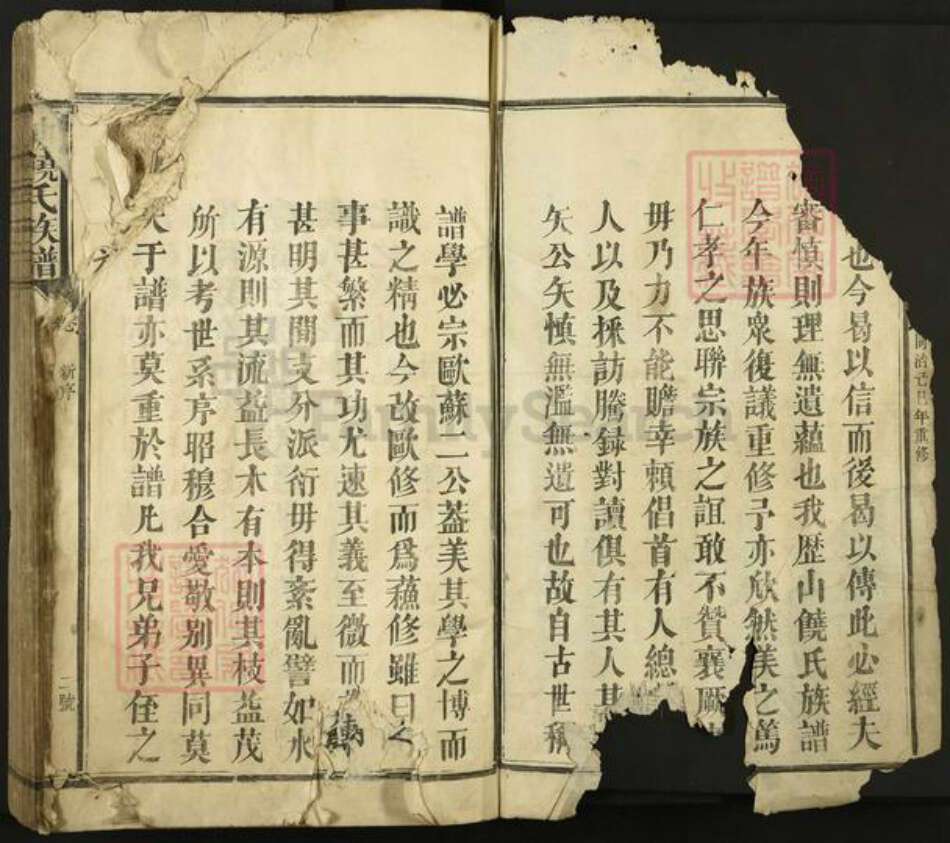 同治己巳年重修
也今曷以信而後曷以傳此必經夫
審慎則理無遺蘊也我歷山饒氏族譜
今年族衆復議重修予亦欣然美之篤
仁孝之思聯宗族之誼敢不贊襄厥
毋乃力不能贍幸賴倡首有人總
人以及採訪騰録對讀俱有其人其
矢公矢慎無濫無遺可也故自古世稱
譜學必宗歐蘇二公葢美其學之博而
識之精也今改歐修而爲蘓修雖曰之
事甚繁而其功尤速其義至微而
甚明其間支分派衍毋得紊亂譬如水
有源則其流益長木有本則其枝益茂
所以考世系序昭穆合愛敬别異同莫
大于譜亦莫重於譜凢我兄弟子侄之
饒氏族譜
卷
新序
二號
PunnySearch